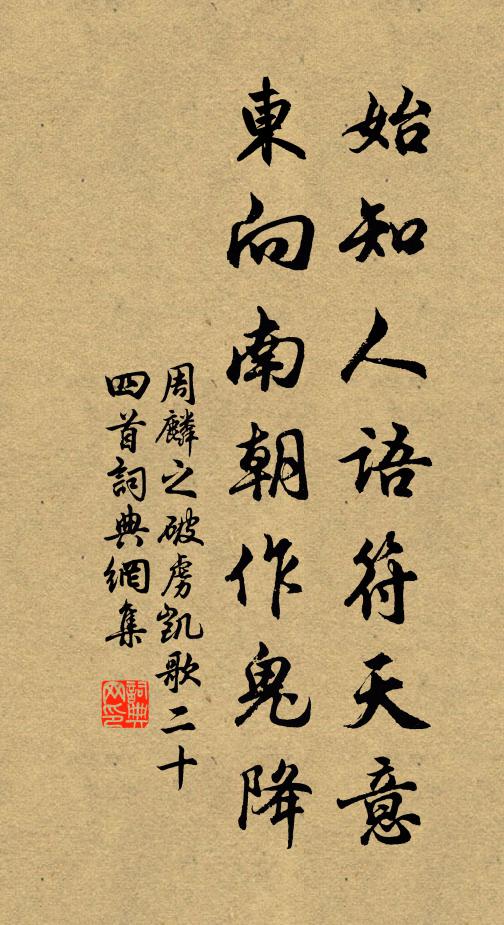 始知人語符天意
東向南朝作鬼降
周麟之破虜凱歌二十
四首詞典網集
詞典
网印